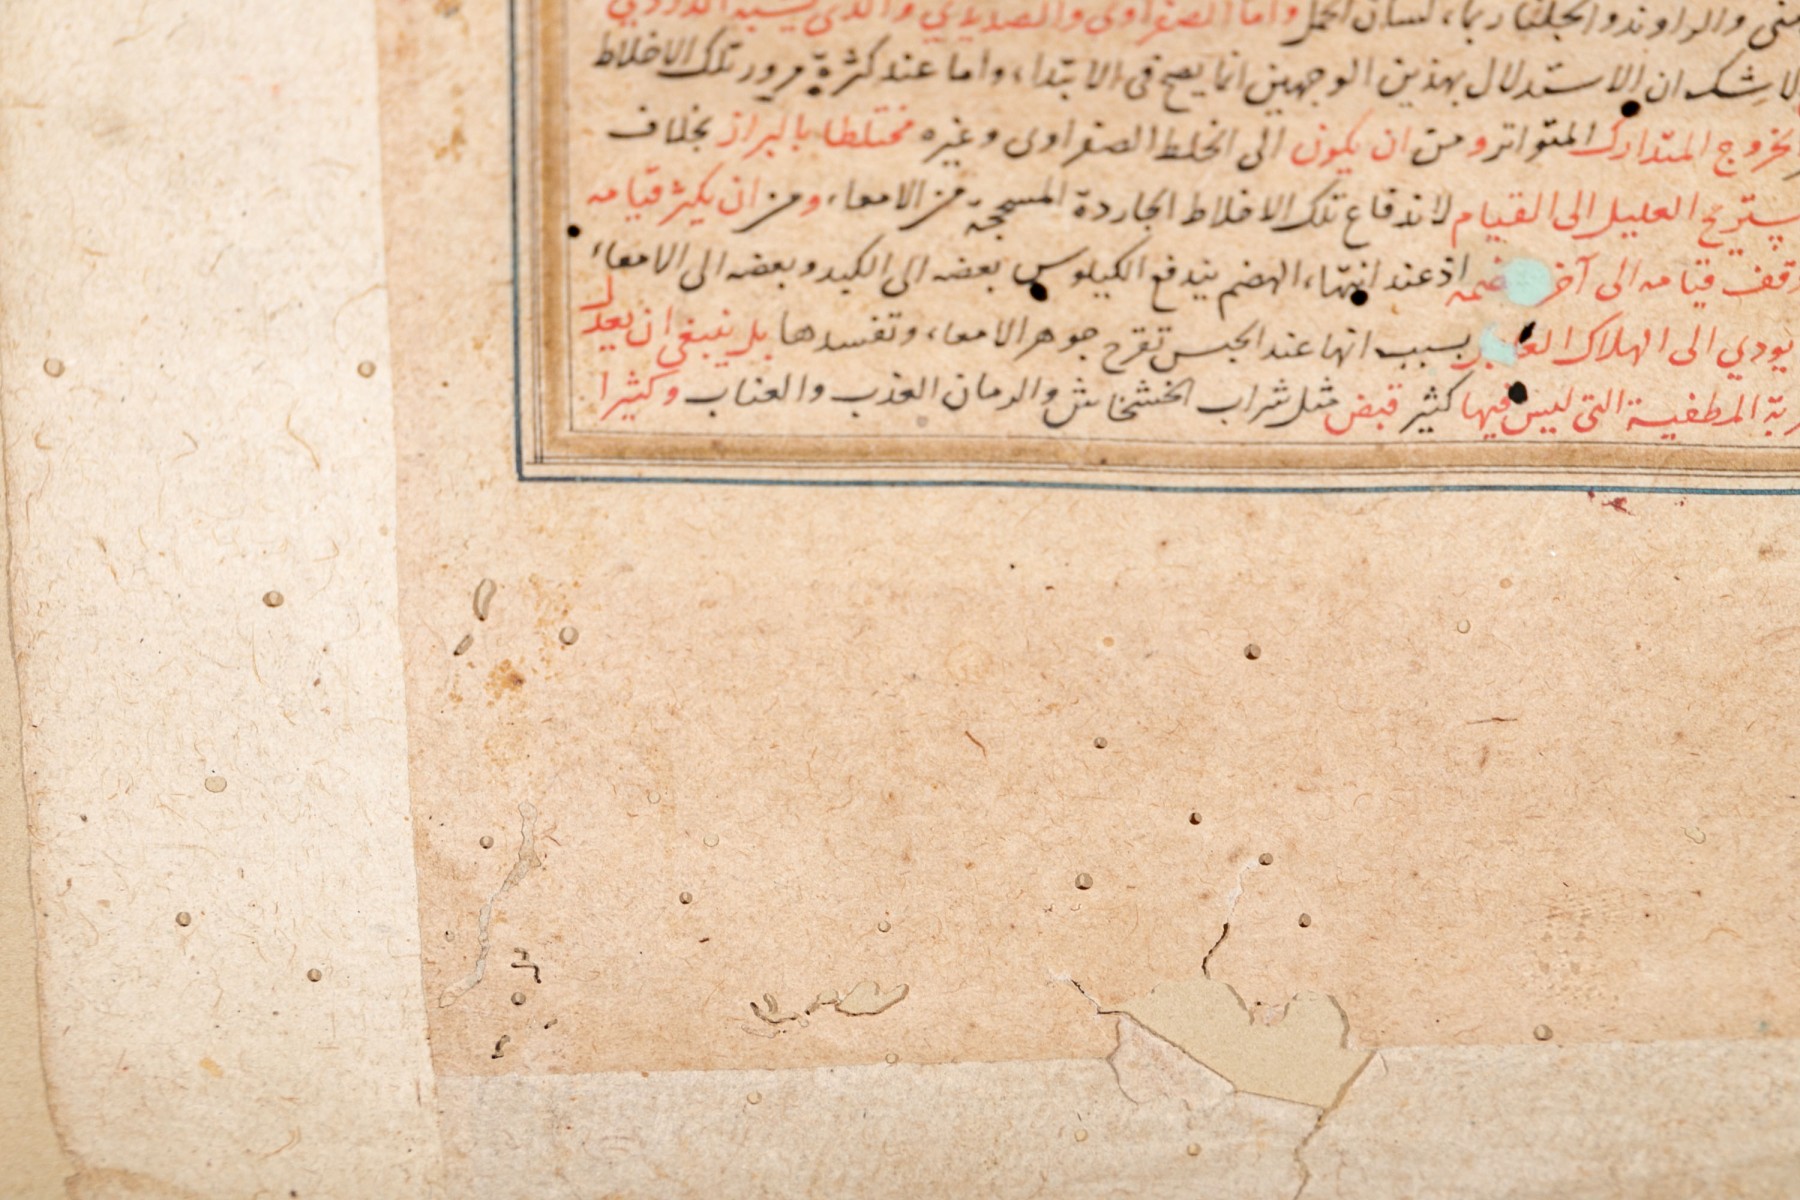 والراوند والجلنار بماء لسان الحمل واما الصفراوي والصديدي والذي يشبه الدردي
لا شك ان الاستدلال بهذين الوجهين انما يصح في الابتداء، واما عند كثرة مرور تلك الاخلاط
الخروج المتدارك المتواتر ومن ان يكون الى الخلط الصفراوى وغيره مختلطا بالبراز بخلاف
يستريح العليل الى القيام لاندفاع تلك الاخلاط الجاردة المسحجة من الامعاء، ومن ان يكثر قيامه
قيامه الى آخر اذ عند انتهاء الهضم يندفع الكيلوس بعضه الى الكبد وبعضه الى الامعاء
يودي الى الهلاك بسبب انها عند الحبس تقرح جوهر الامعاء، وتفسدها بل ينبغى ان يعدل
المطفية التى ليس فيها كثير قبض مثل شراب الخشخاش والرمان العذب والعناب وكثيرا